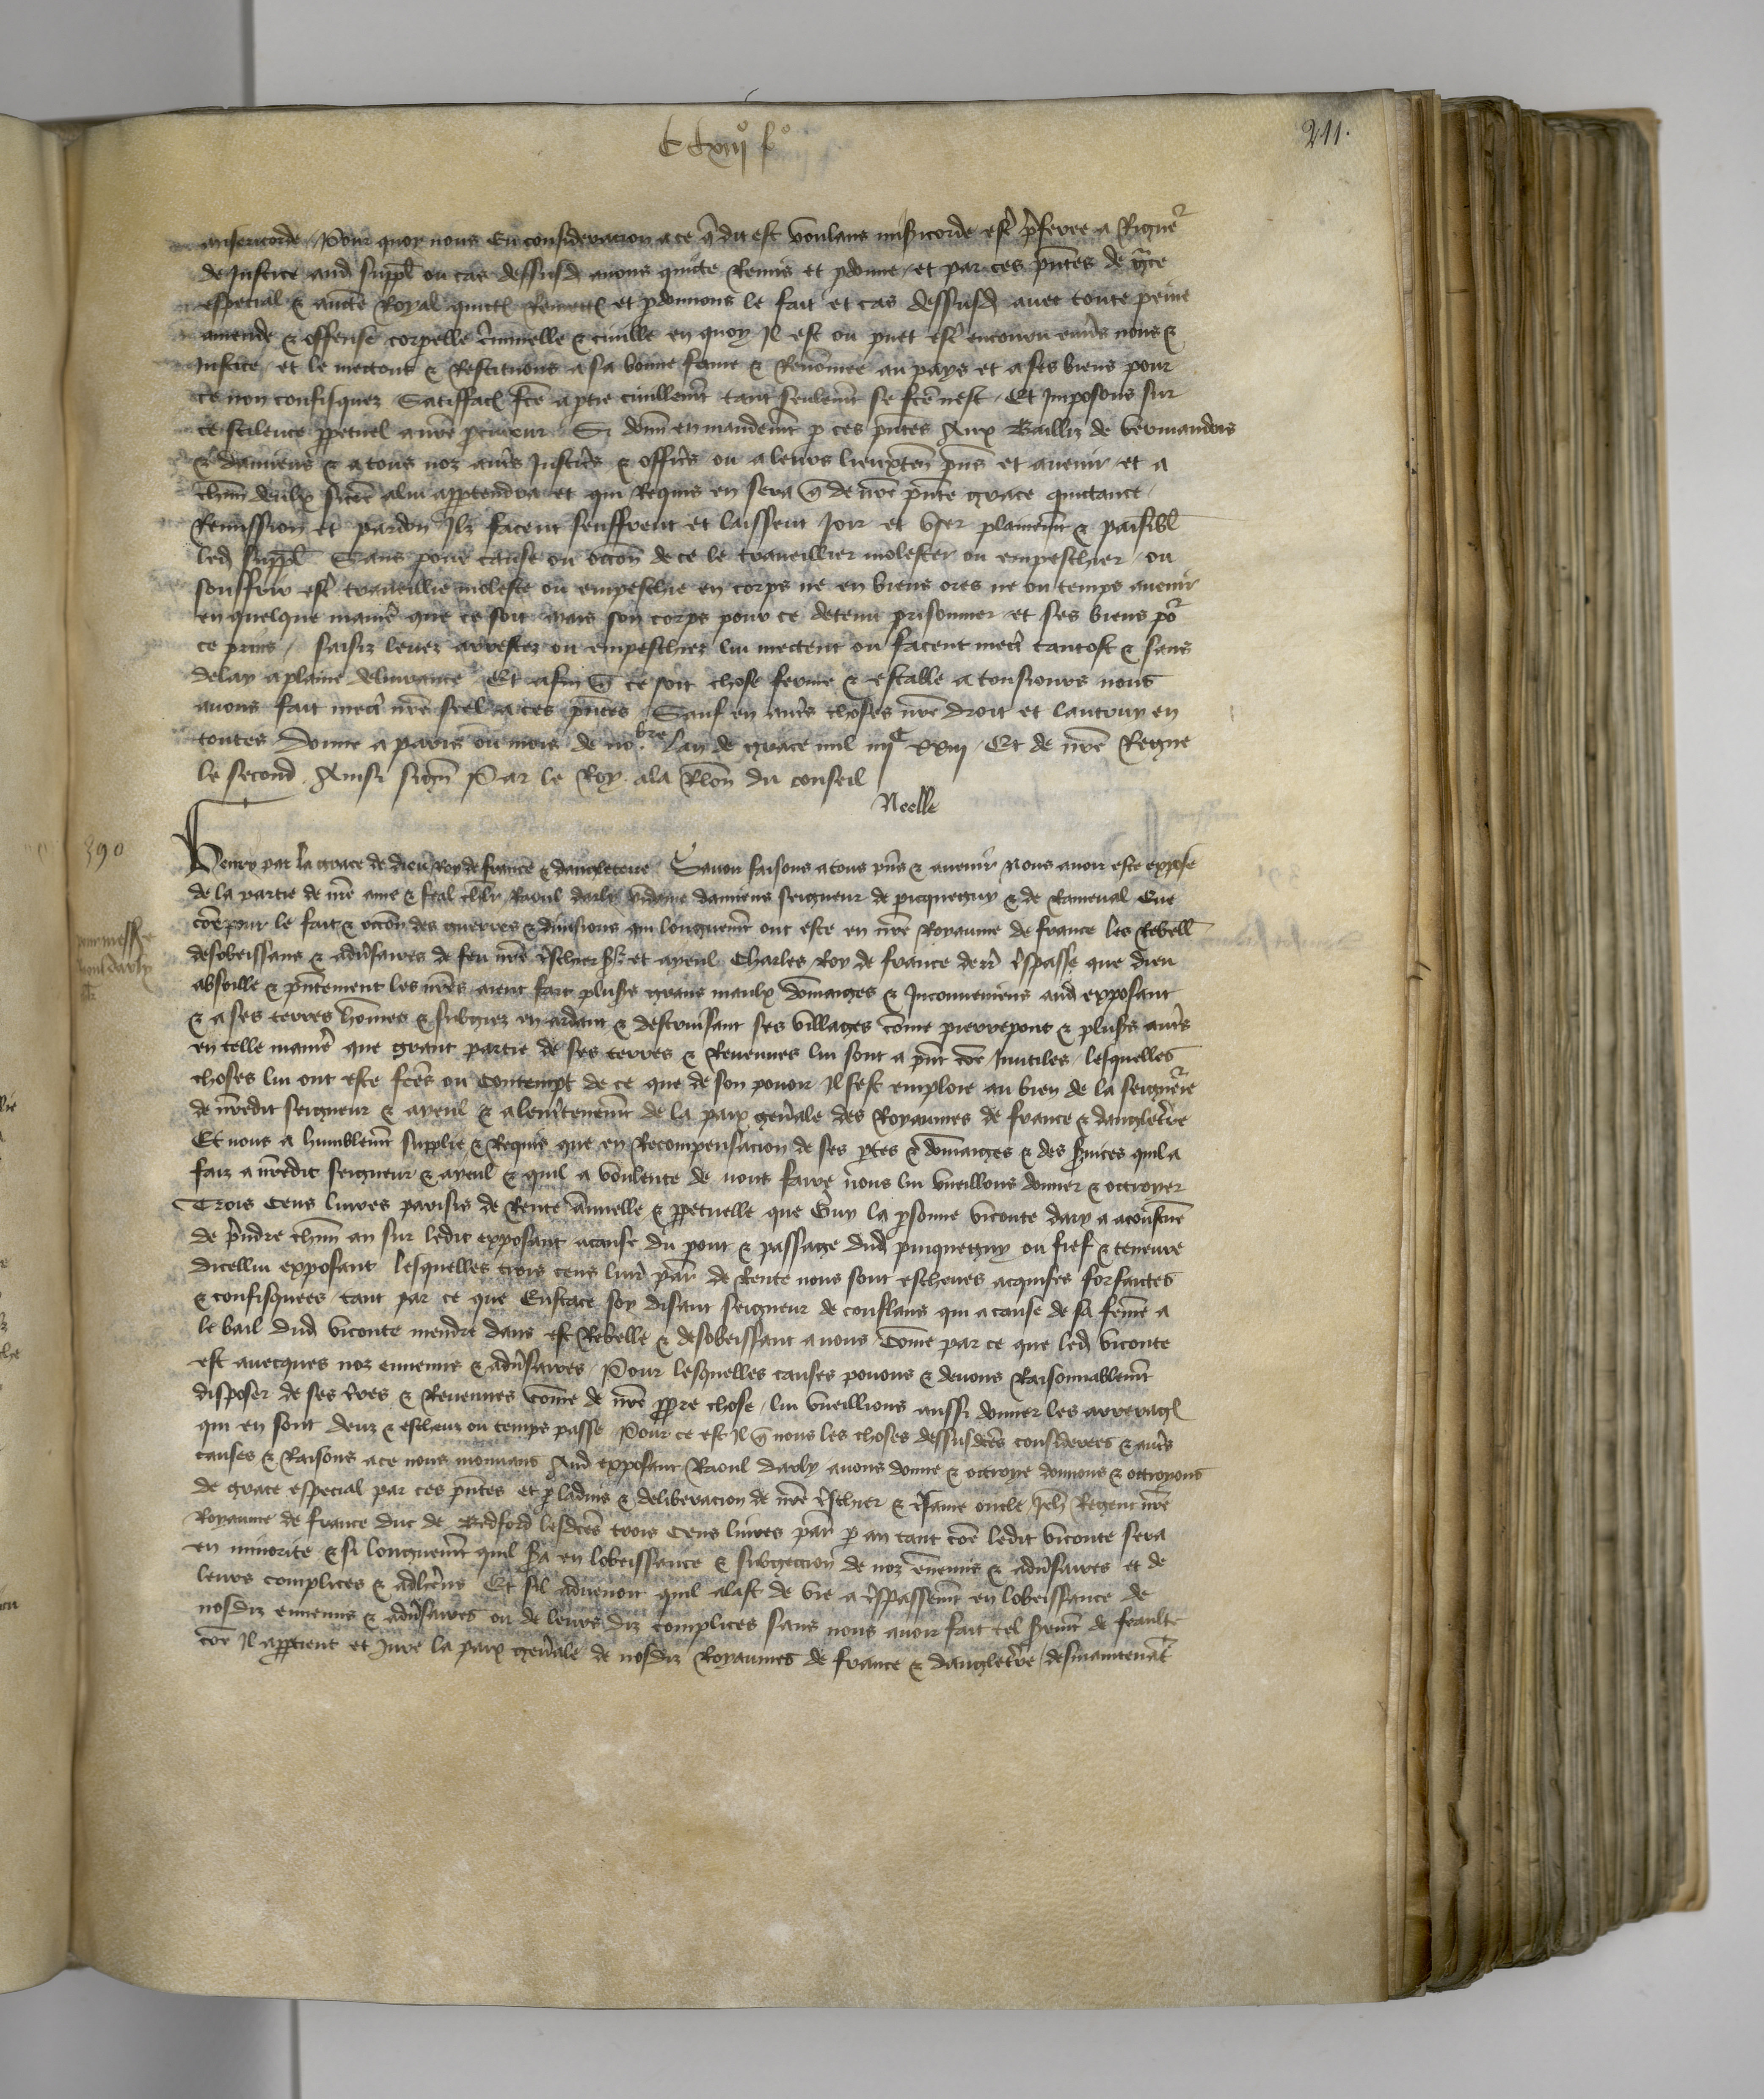 CCxiiii° f°
211.
misericorde / Pour quoy nous Eu consideracion a ce q̃ dit est voulans misicorde estr̃ p̃feree a Rigueᵘʳ
de Justice aud suppl̃ ou cas dessusd̃ auons quicte Remis et pdonne / et par ces p̃ntes de gr̃ce
especial & aucte Royal quictõs Remettõs et pdonnons le fait et cas dessusd̃ auec toute peine
amende & offense corpelle cr̃iminelle & ciuille en quoy Il est ou puet estr̃ encouru enũs nous &
Justice / et le mectons & Restituons a sa bonne fame & Renõmee au pays et a ses biens pour
ce non confisquez Satiffacõn fcẽ a ptie ciuillem̃t tant seulem̃t se fcẽ nest / Et Imposons sur
ce scilence ppetuel a nrẽ procureur Si donñ en mandem̃t p ces p̃ntes Aux Bailliz de vermandois
& damiens & a tous noz aũs Justic̃s & offic̃s ou a leurs lieuxteñ p̃ns et auenir et a
chũn deulx sicõe a lui apptendra et qui Requis en sera q̃ de nrẽ p̃nte grace quictance
Remission et pardon Ilz facent seuffrent et laissent Joir et vser plainem̃t & paisibl̃
led̃ suppl̃ Sans pour cause ou occõn de ce le trauaillier molester ou empeschier / ou
souffrir estr̃ trauaillie moleste ou empeschie en corps ne en biens ores ne ou temps auenir
en quelque manier̃ que ce soit mais son corps pour ce detenu prisonnier et ses biens poᵘʳ
ce prins / saisiz leuez arrestez ou empeschiez lui mectent ou facent mectr̃ tantost & sans
delay a plaine deliurance Et afin q̃ ce soit chose ferme & estable a tousiours nous
auons fait mectr̃ nrẽ scel a ces p̃ntes Sauf en aũs choses nrẽ droit et lautruy en
toutes Donne a paris ou mois de noᵇʳᵉ Lan de grace mil iiiiᶜ xxiii / Et de nrẽ Regne
le second . Ainsi signẽ Par le Roy a la Rlõn du conseil
Neelle
390
Henry par la grace de dieu Roy de france & dangleterre Sauoir faisons a tous p̃ns & auenir Nous auoir este expose
de la partie de nrẽ ame & feal chlr̃ Raoul darly vidame damiens seigneur de picquegny & de Rameual Que
cõe pour le fait & occõn des guerres & diuisions qui longuem̃t ont este en nrẽ Royaume de france les Rebell̃
pour messᵉ
Raoul darly
desobeissans & adũsaires de feu nrẽ tr̃schier sʳ et ayeul Charles Roy de france derr̃ tr̃spasse que dieu
absoille & p̃ntement les nrẽs aient fait plusʳˢ grans maulx dõmaiges & Inconueniens aud̃ exposant
& a ses terres hom̃es & subgiez en ardant & destruisant ses villages cõme pierrepont & plusʳˢ aũs
en telle manier̃ que grant partie de ses terres & Reuenues lui sont a p̃nt cõe Inutiles / lesquelles
choses lui ont este fcẽs ou contempt de ce que de son pouoir Il sest emploie au bien de la seigneᵘʳie
de nrẽdit seigneur & ayeul & a lentr̃tenem̃t de la paix gen̄ale des Royaumes de france & dangleterr̃e
Et nous a humblem̃t supplie & Requis que en Recompensacion de ses ptes & dõmaiges & des s̃uices quil a
faiz a nrẽdit seigneur & ayeul & quil a voulente de nous faire nous lui vueillons donner & octroyer
Trois Cens liures parisis de Rente ãnuelle & ppetuelle que Guy la psonne viconte dacy a acoustũe
de pr̃ndre chũn an sur ledit exposant a cause du pont & passage dud̃ pinquegny ou fief & teneure
dicellui exposant lesquelles trois cens liur̃ par̃ de Rente nous sont escheues acquises forfaictes
& confisquees tant par ce que Eustace soy disant seigneur de conflans qui a cause de sa fem̃e a
le bail dud̃ viconte mendre dans est Rebelle & desobeissant a nous Cõme par ce que led̃ viconte
est auecques noz ennemis & adũsaires / Pour lesquelles causes pouons & deuons Raisonnablem̃t
disposer de ses terr̃es & Reuenues cõme de nrẽ ppre chose / lui vueillions aussi donner les arreragꝭ
qui en sont deuz & escheuz ou temps passe Pour ce est Il q̃ nous les choses dessusdcẽs considerees & aũs
causes & Raisons a ce nous mouuans Aud̃ exposant Raoul darly auons donne & octroye donnons & octroyons
de grace especial par ces p̃ntes et p ladiuis & deliberacion de nrẽ tr̃schier & tr̃same oncle Jeh̃ Regent nrẽ
Royaume de france duc de Bedford lesdcẽs trois Cens liures par̃ p an tant cõe ledit viconte sera
en minorite & si longuem̃t quil sr̃a en lobeissance & subgection de noz ennemis & adũsaires et de
leurs complices & adher̃ns Et sil aduenoit quil alast de vie a tr̃spassem̃t en lobeissance de
nosdiz ennemis & adũsaires ou de leurs diz complices sans nous auoir fait tel serem̃t de feaulte
cõe Il appartient et Jure la paix gen̄ale de nosdiz Royaumes de france & dangleterr̃e / desmaintenãt